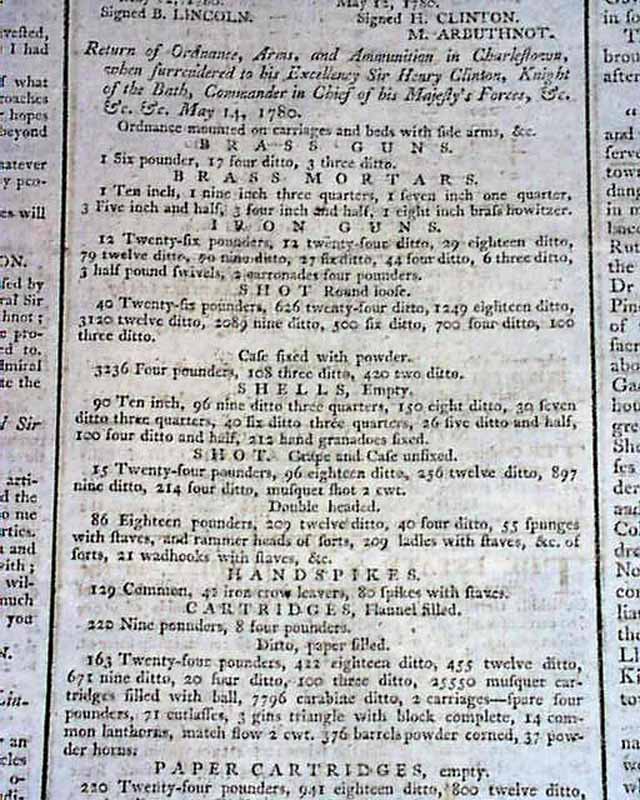 May 12, 1780. May 12, 1780.
Signed B. LINCOLN. Signed H. CLINTON.
M. ARBUTHNOT.
Return of Ordnance, Arms, and Ammunition in Charlestown,
when surrendered to his Excellency Sir Henry Clinton, Knight
of the Bath, Commander in Chief of his Majesty's Forces, &c.
&c. &c. May 14, 1780.
Ordnance mounted on carriages and beds with side arms, &c.
BRASS GUNS.
1 Six pounder, 17 four ditto, 3 three ditto.
BRASS MORTARS.
1 Ten inch, 1 nine inch three quarters, 1 seven inch one quarter,
3 Five inch and half, 3 four inch and half, 1 eight inch brass howitzer.
IRON GUNS.
12 Twenty-six pounders, 12 twenty-four ditto, 29 eighteen ditto,
79 twelve ditto, nine ditto, 27 six ditto, 44 four ditto, 6 three ditto,
3 half pound swivels, 2 carronades four pounders.
SHOT Round loose.
40 Twenty-six pounders, 626 twenty-four ditto, 1249 eighteen ditto,
3120 twelve ditto, 2089 nine ditto, 500 six ditto, 700 four ditto, 100
three ditto.
Case fixed with powder.
3236 Four pounders, 108 three ditto, 420 two ditto.
SHELLS, Empty.
90 Ten inch, 96 nine ditto three quarters, 150 eight ditto, 30 seven
ditto three quarters, 40 six ditto three quarters, 26 five ditto and half,
100 four ditto and half, 212 hand granadoes fixed.
SHOT. Grape and Case unfixed.
15 Twenty-four pounders, 96 eighteen ditto, 256 twelve ditto, 897
nine ditto, 214 four ditto, musquet shot 2 cwt.
Double headed.
86 Eighteen pounders, 209 twelve ditto, 40 four ditto, 55 spunges
with staves, and rammer heads of sorts, 209 ladles with staves, &c. of
sorts, 21 wadhooks with staves, &c.
HANDSPIKES.
129 Common, 42 iron crow leavers, 80 spikes with staves.
CARTRIDGES, Flannel filled.
220 Nine pounders, 8 four pounders.
Ditto, paper filled.
163 Twenty-four pounders, 422 eighteen ditto, 455 twelve ditto,
671 nine ditto, 20 four ditto, 100 three ditto, 25550 musquet car-
tridges filled with ball, 7796 carabine ditto, 2 carriages—spare four
pounders, 71 cutlasses, 3 gins triangle with block complete, 14 com-
mon lanthorns, match slow 2 cwt. 376 barrels powder corned, 37 pow-
der horns.
PAPER CARTRIDGES, empty.
220 Twenty-four pounders, 941 eighteen ditto, 800 twelve ditto,